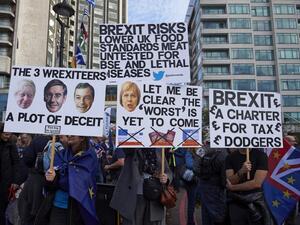 BREXIT RISKS
LOWER UK FOOD
STANDARDS MEAT
UNTESTED FOR
BSE AND LETHAL
DISEASES
THE 3 WREXITEERS
A PLOT OF DECEIT
LET ME BE
CLEAR THE
WORST IS
YET TO COME
BREXIT
A CHARTER
FOR TAX
DODGERS